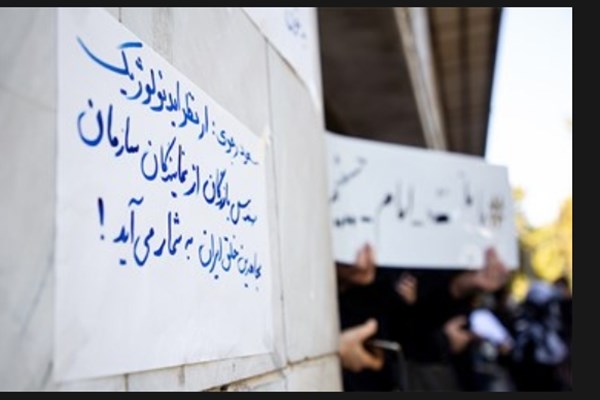 مسعود رجوی: از نظر ایدئولوژیک
مهندس بازرگان از نمایندگان سازمان
مجاهدین خلق ایران به شمار می‌آید!
امام